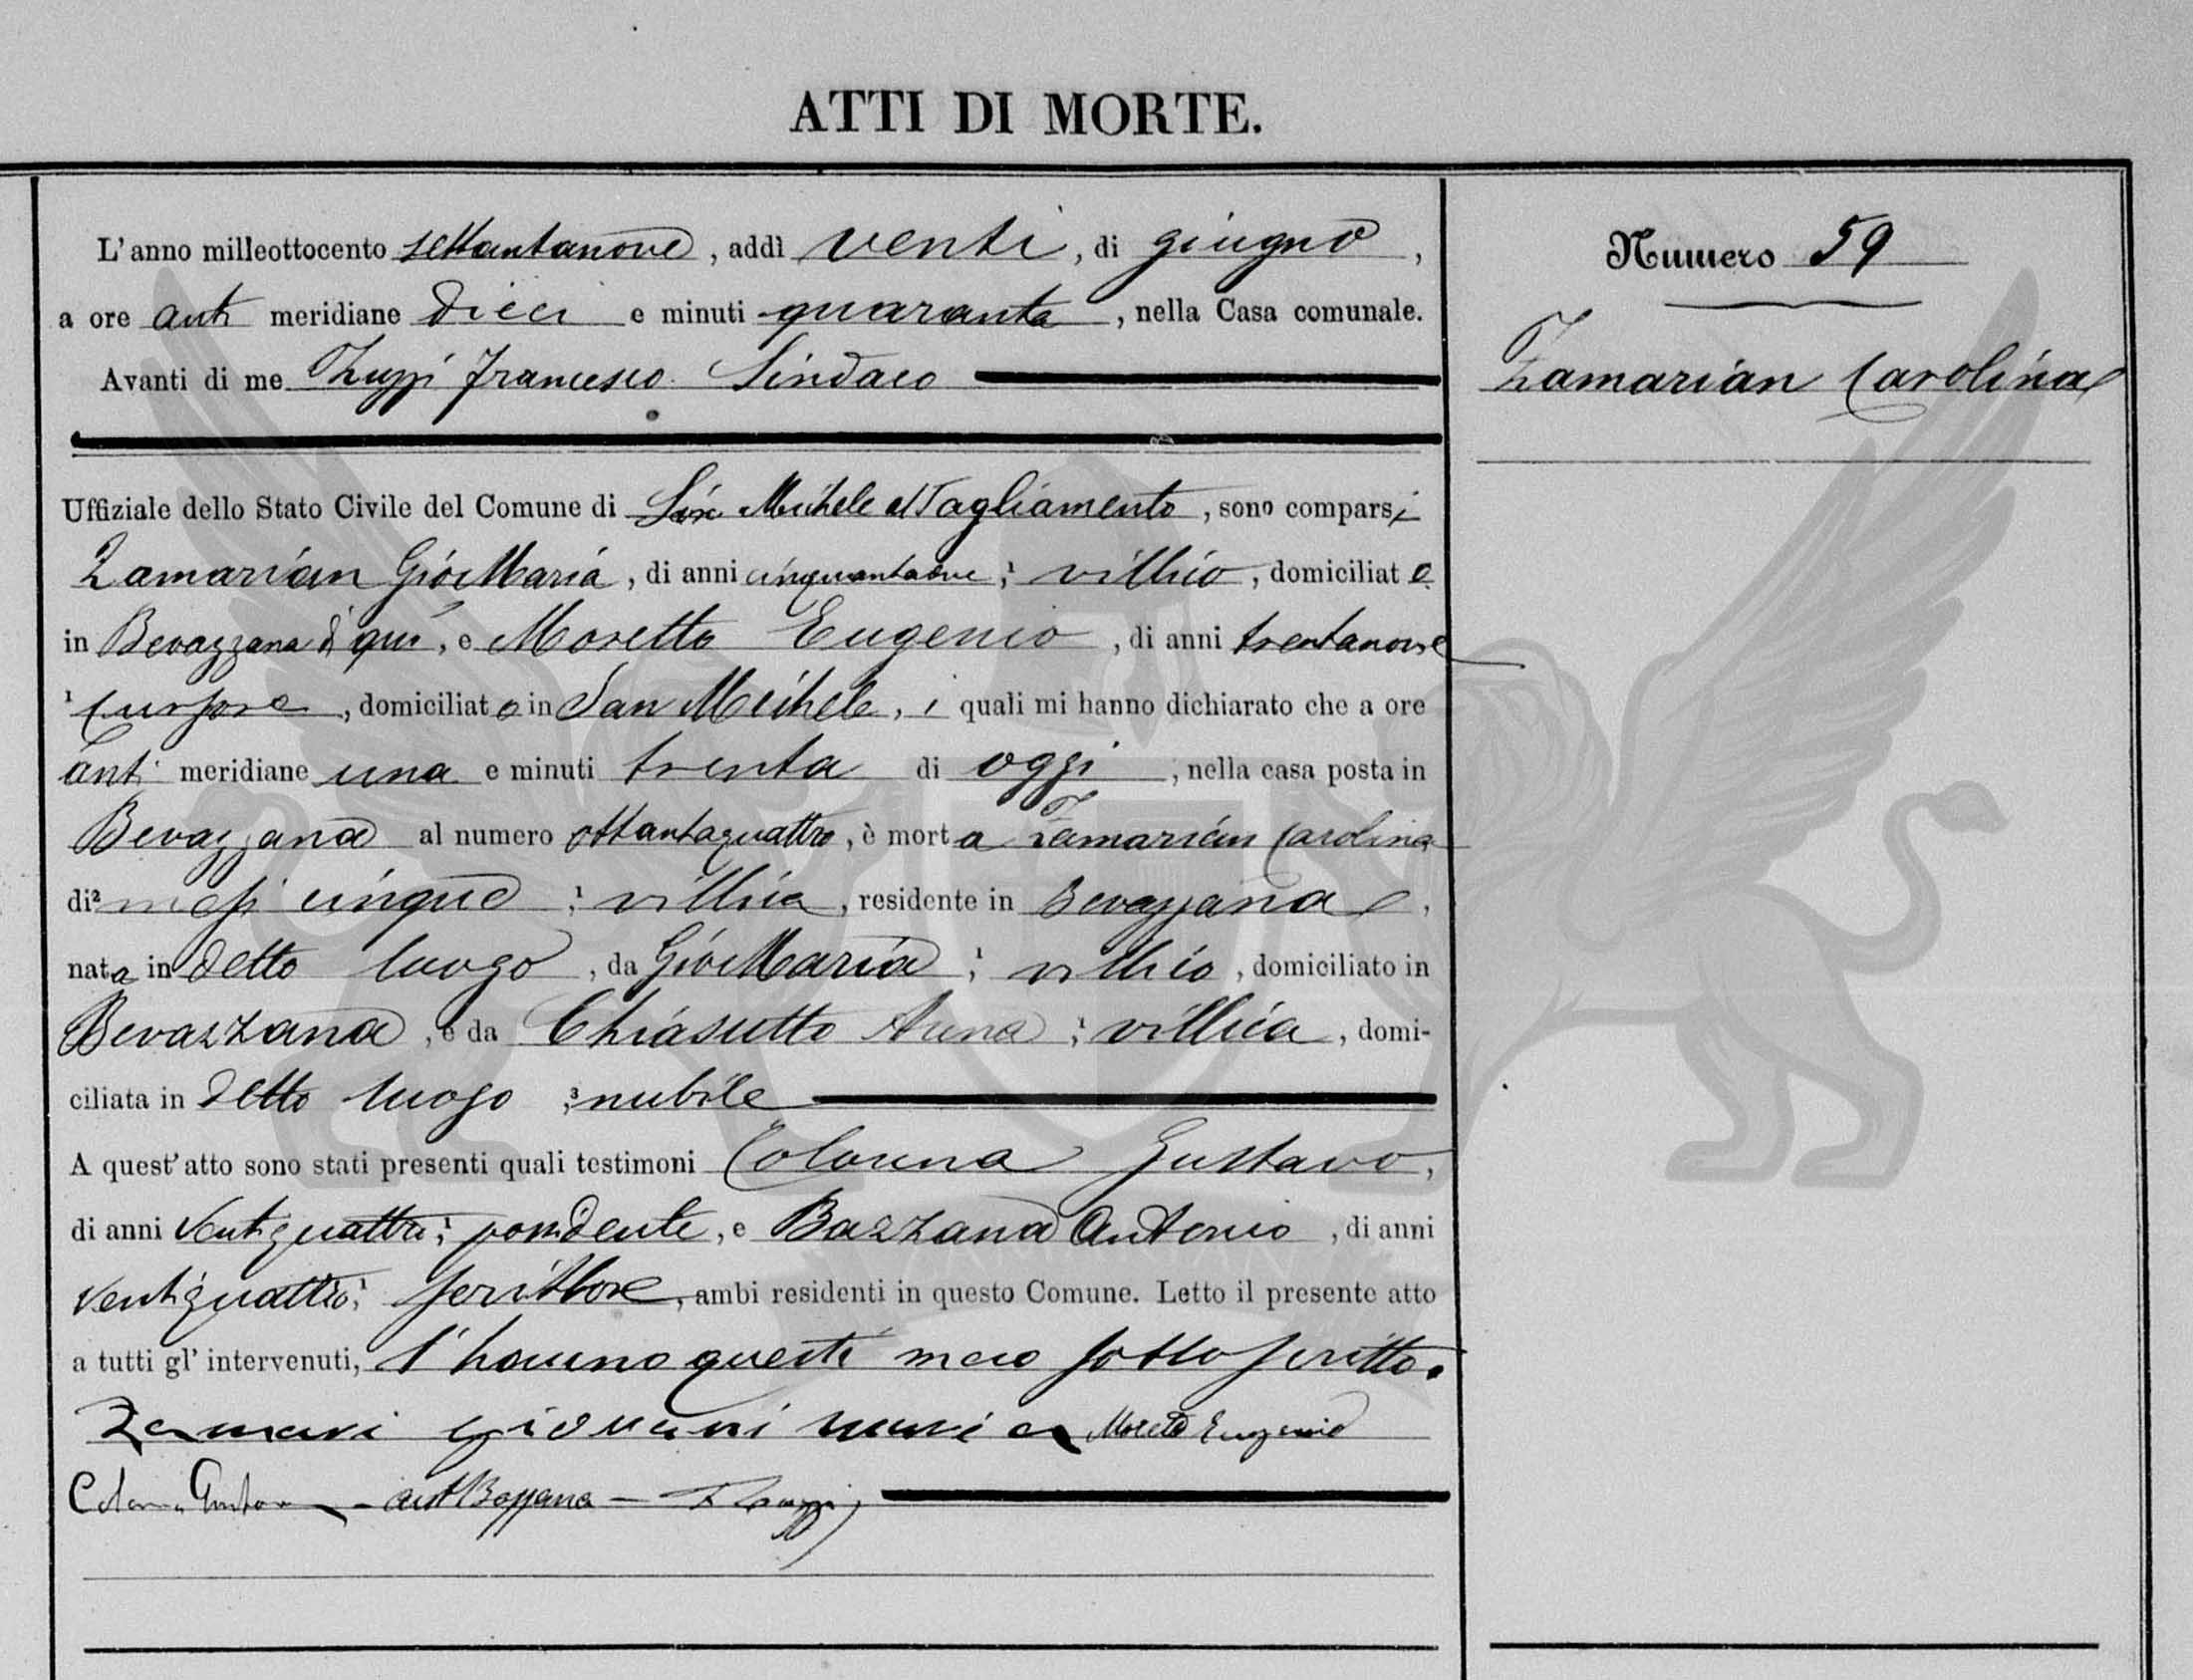 ATTI DI MORTE.
Numero 59
Zamarian Carolina
L'anno milleottocento settantanove, addì venti, di giugno,
a ore anti meridiane dieci e minuti quaranta, nella Casa comunale.
Avanti di me Zuzzi Francesco Sindaco
Uffiziale dello Stato Civile del Comune di San Michele al Tagliamento, sono comparsi
Zamarian Gio Maria, di anni, villico, domiciliato
in Bevazzana di qui, e Moretto Eugenio, di anni trentanove
cursore, domiciliato in San Michele, i quali mi hanno dichiarato che a ore
anti meridiane una e minuti trenta di oggi, nella casa posta in
Bevazzana al numero ottantaquattro, è morta Zamarian Carolina
di² mesi cinque, ¹ villica, residente in Bevazzana,
nata in detto luogo, da Gio Maria, ¹ villico, domiciliato in
Bevazzana, e da Chiasutto Anna, ¹ villica, domi-
ciliata in detto luogo, ³ nubile
A quest'atto sono stati presenti quali testimoni Colonna Gustavo,
di anni ventiquattro, ¹ possidente, e Bazzana Antonio, di anni
ventiquattro, ¹ scrittore, ambi residenti in questo Comune. Letto il presente atto
a tutti gl'intervenuti, l'hanno questi meco sottoscritto.
Zamari giovani maria Moretto Eugenio
Colonna Gustavo - Ant Bazzana - F Zuzzi